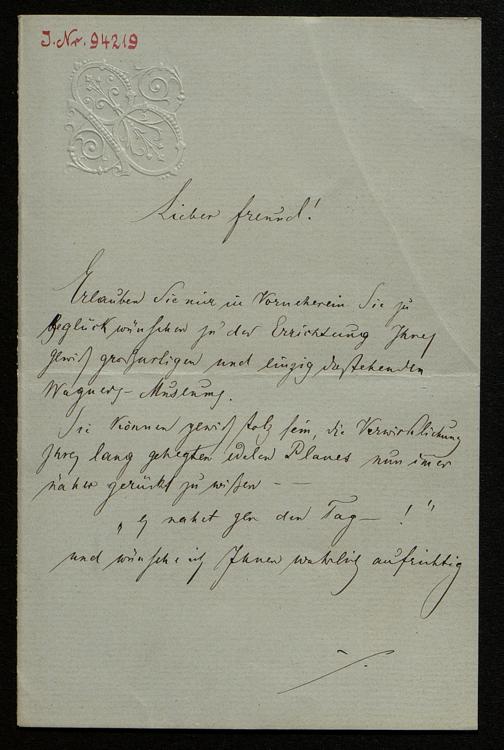 J. Nr. 94219
Lieber Freund!
Erlauben Sie mir in Vorneherein Sie zu
beglückwünschen zu der Errichtung Ihres
gewiß großartigen und einzig dastehenden
Wagners-Museums.
Sie können gewiß stolz sein, die Verwirklichung
Ihres lang gehegten edelen Planes nun imer
näher gerückt zu wißen – –
„ es nahet gen den Tag – ! "
und wünsche ich Ihnen wahrlich aufrichtig